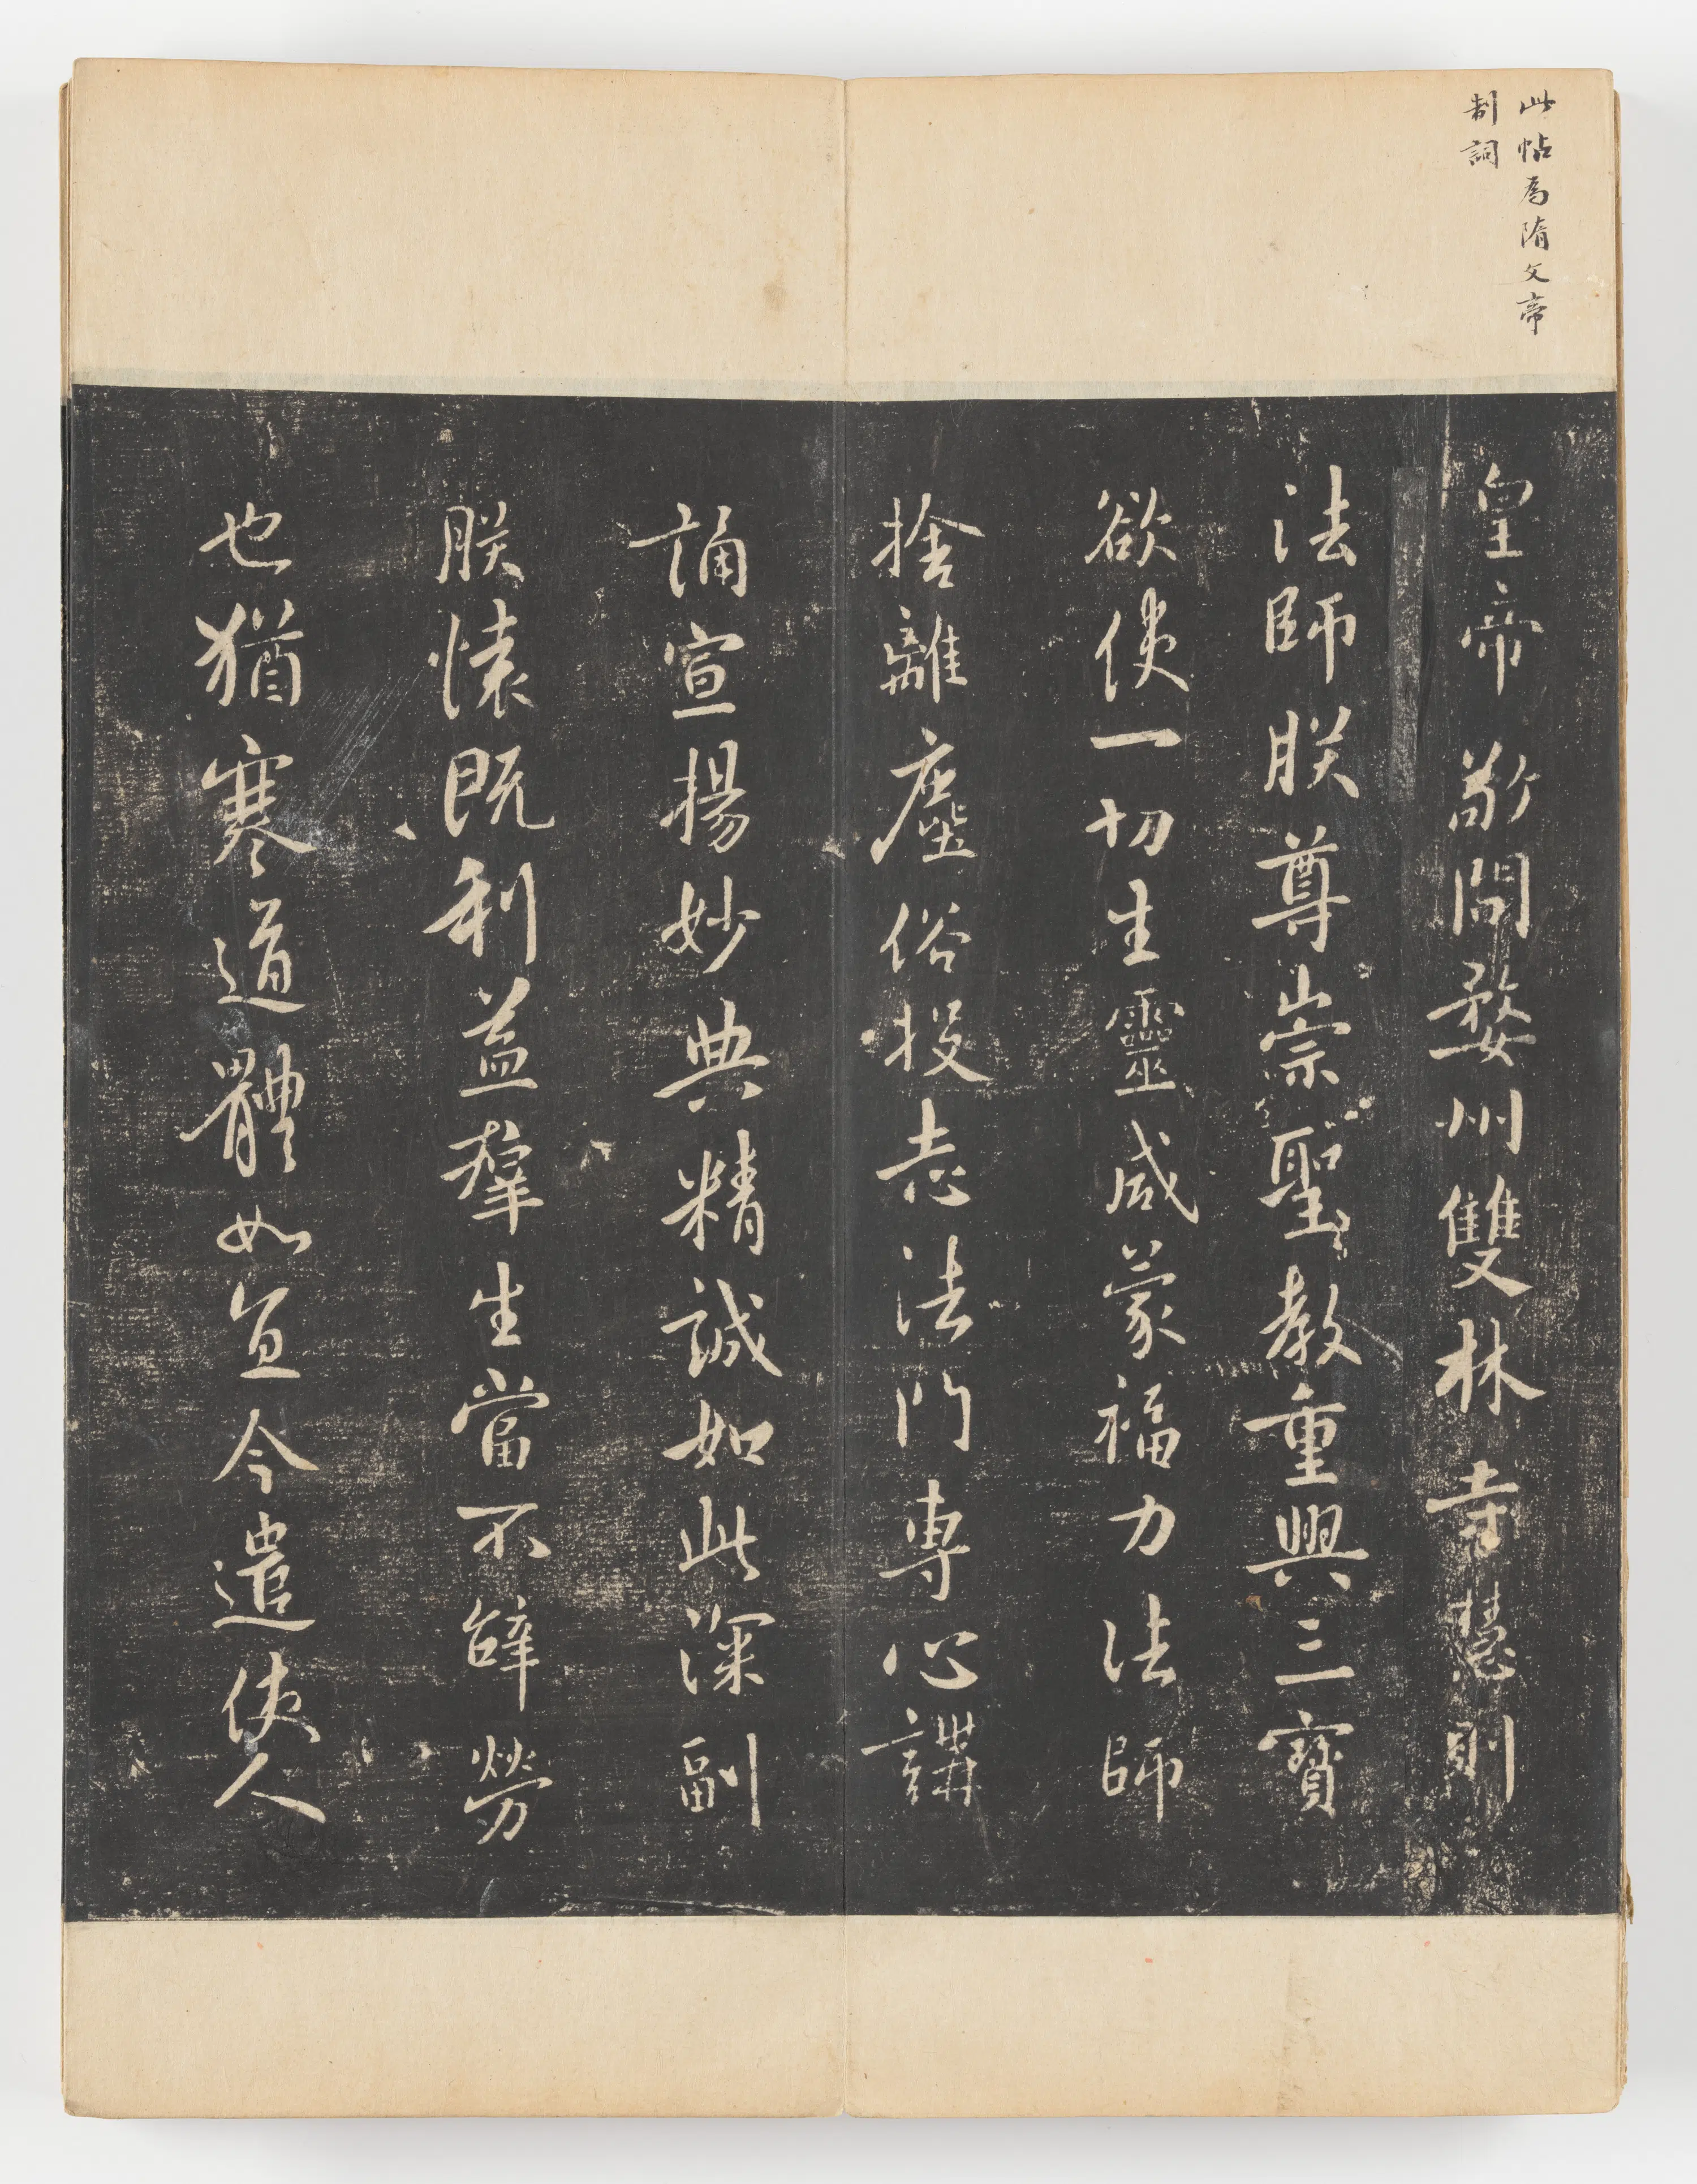 此帖為隋文帝
制詞
皇帝敬問婺州雙林寺慧則
法師朕尊崇聖教重興三寶
欲使一切生靈咸蒙福力法師
捨離塵俗投志法門專心講
誦宣揚妙典精誠如此深副
朕懷既利益羣生當不辭勞
也猶寒道體如宜今遣使人